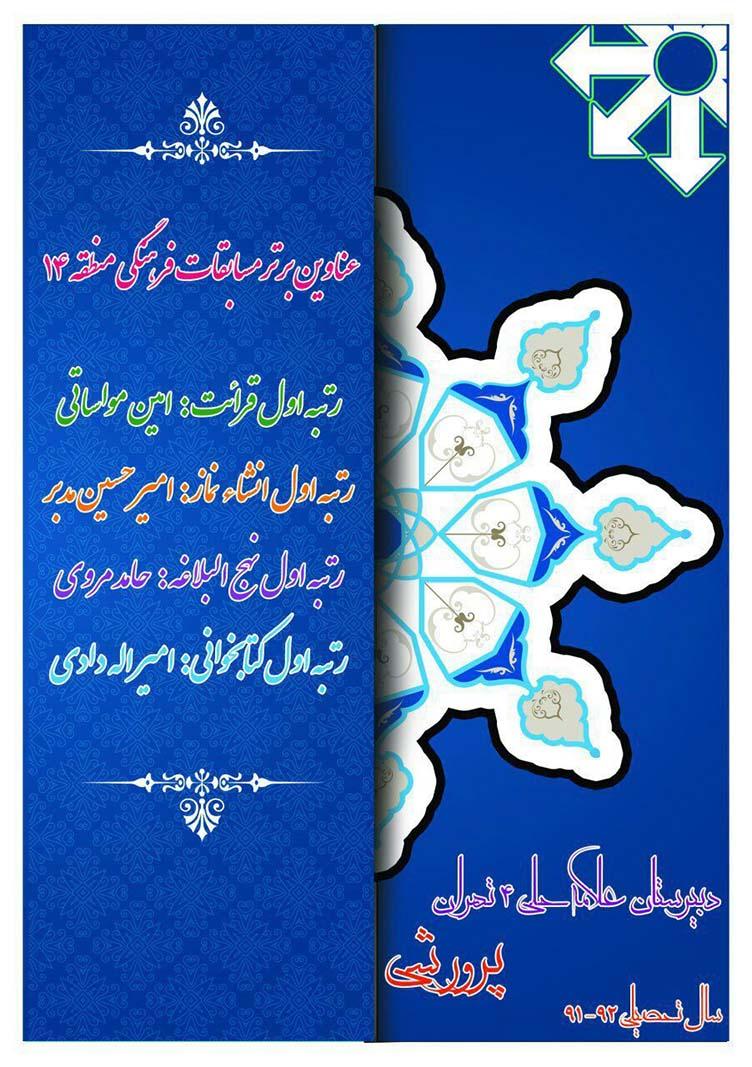 عناوین برتر مسابقات فرهنگی منطقه ۱۴
رتبه اول قرائت: امین مواساتی
رتبه اول انشاء نماز: امیر حسین مدبر
رتبه اول نهج البلاغه: حامد مروی
رتبه اول کتابخوانی: امیر اله دادی
دبیرستان علامه حلی ۴ تهران
پرورشی
سال تحصیلی ۹۲-۹۱